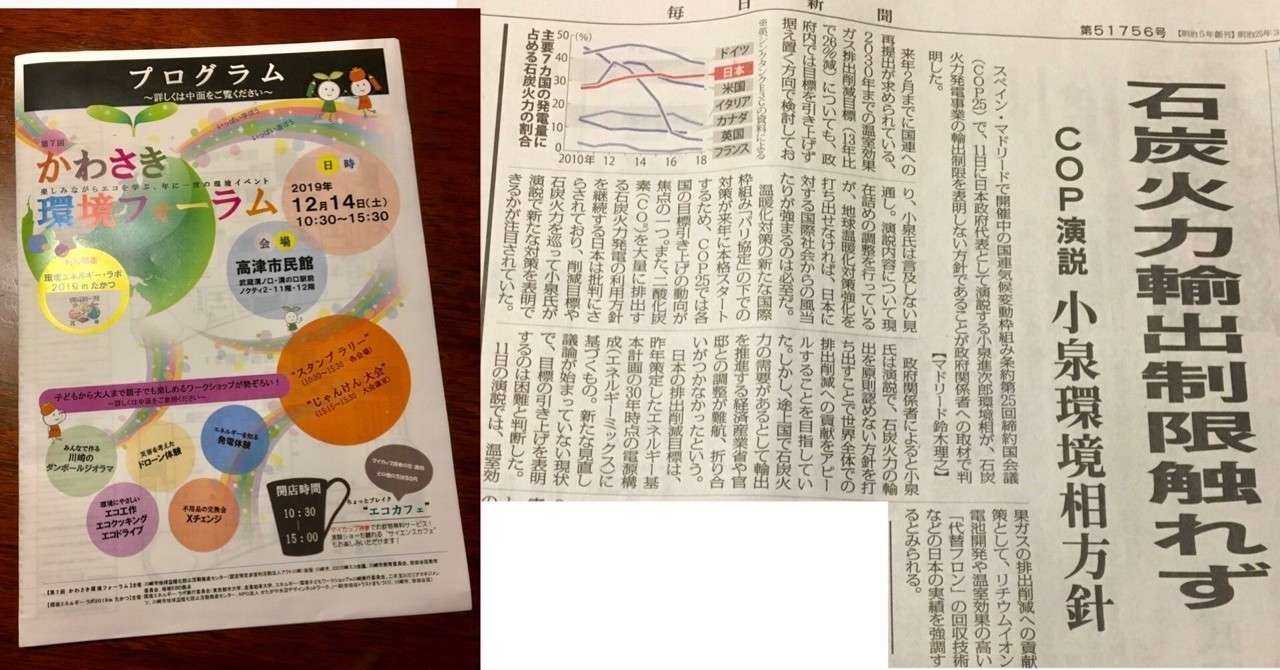 プログラム
～詳しくは中面をご覧ください～
第7回
かわさき
楽しみながらエコを学ぶ、年に一度の環境イベント
環境フォーラム
日時
2019年
12月14日(土)
10:30～15:30
会場
高津市民館
武蔵溝ノ口・溝の口駅前
ノクティ2-11階・12階
同時開催
環境エネルギー・ラボ
2019 in たかつ
"スタンプ ラリー"
(10:30～15:30 各会場)
"じゃんけん 大会"
(15:15～15:30 大会議室)
子どもから大人まで親子でも楽しめるワークショップが勢ぞろい！
みんなで作る
川崎の
ダンボールジオラマ
災害を考えた
ドローン体験
エネルギーを知る
発電体験
環境にやさしい
エコ工作
エコクッキング
エコドライブ
不用品の交換会
Xチェンジ
開店時間
10:30
15:00
ちょっとブレイク
"エコカフェ"
マイカップ持参でお飲物無料サービス！
実験ショーも観れる "サイエンスカフェ"
もお楽しみいただけます！
毎日新聞
第51756号
石炭火力輸出制限触れず
COP演説 小泉環境相方針
スペイン・マドリードで開催中の国連気候変動枠組み条約第25回締約国会議
（COP25）で、11日に日本政府代表として演説する小泉進次郎環境相が、石炭
火力発電事業の輸出制限を表明しない方針であることが政府関係者への取材で判
明した。
【マドリード鈴木理之】
来年2月までに国連への
再提出が求められている、
2030年までの温室効果
ガス排出削減目標（13年比
で26%減）についても、政
府内では目標を引き上げず
据え置く方向で検討してお
主要7カ国の発電量に
占める石炭火力の割合
50(%)
40
30
20
10
0
2010年 12 14 16 18
ドイツ
日本
米国
イタリア
カナダ
英国
フランス
※英シンクタンクE3Gの資料による
り、小泉氏は言及しない見
通し。演説内容について現
在詰めの調整を行っている
が、地球温暖化対策強化を
打ち出せなければ、日本に
対する国際社会からの風当
たりが強まるのは必至だ。
温暖化対策の新たな国際
枠組み「パリ協定」の下での
対策が来年に本格スタート
するため、COP25では各
国の目標引き上げの動向が
焦点の一つ。また、二酸化炭
素（CO₂）を大量に排出す
る石炭火力発電の利用方針
を継続する日本は批判にさ
らされており、削減目標や
石炭火力を巡って小泉氏が
演説で新たな対策を表明で
きるかが注目されていた。
政府関係者によると小泉
氏は演説で、石炭火力の輸
出を原則認めない方針を打
ち出すことで世界全体での
排出削減への貢献をアピー
ルすることを目指してい
た。しかし、途上国で石炭火
力の需要があるとして輸出
を推進する経済産業省や官
邸との調整が難航、折り合
いがつかなかったという。
日本の排出削減目標は、
昨年策定したエネルギー基
本計画の30年時点の電源構
成（エネルギーミックス）に
基づくもの。新たな見直し
議論が始まっていない現状
で、目標の引き上げを表明
するのは困難と判断した。
11日の演説では、温室効
果ガスの排出削減への貢献
策として、リチウムイオン
電池開発や温室効果の高い
「代替フロン」の回収技術
などの日本の実績を強調す
るとみられる。